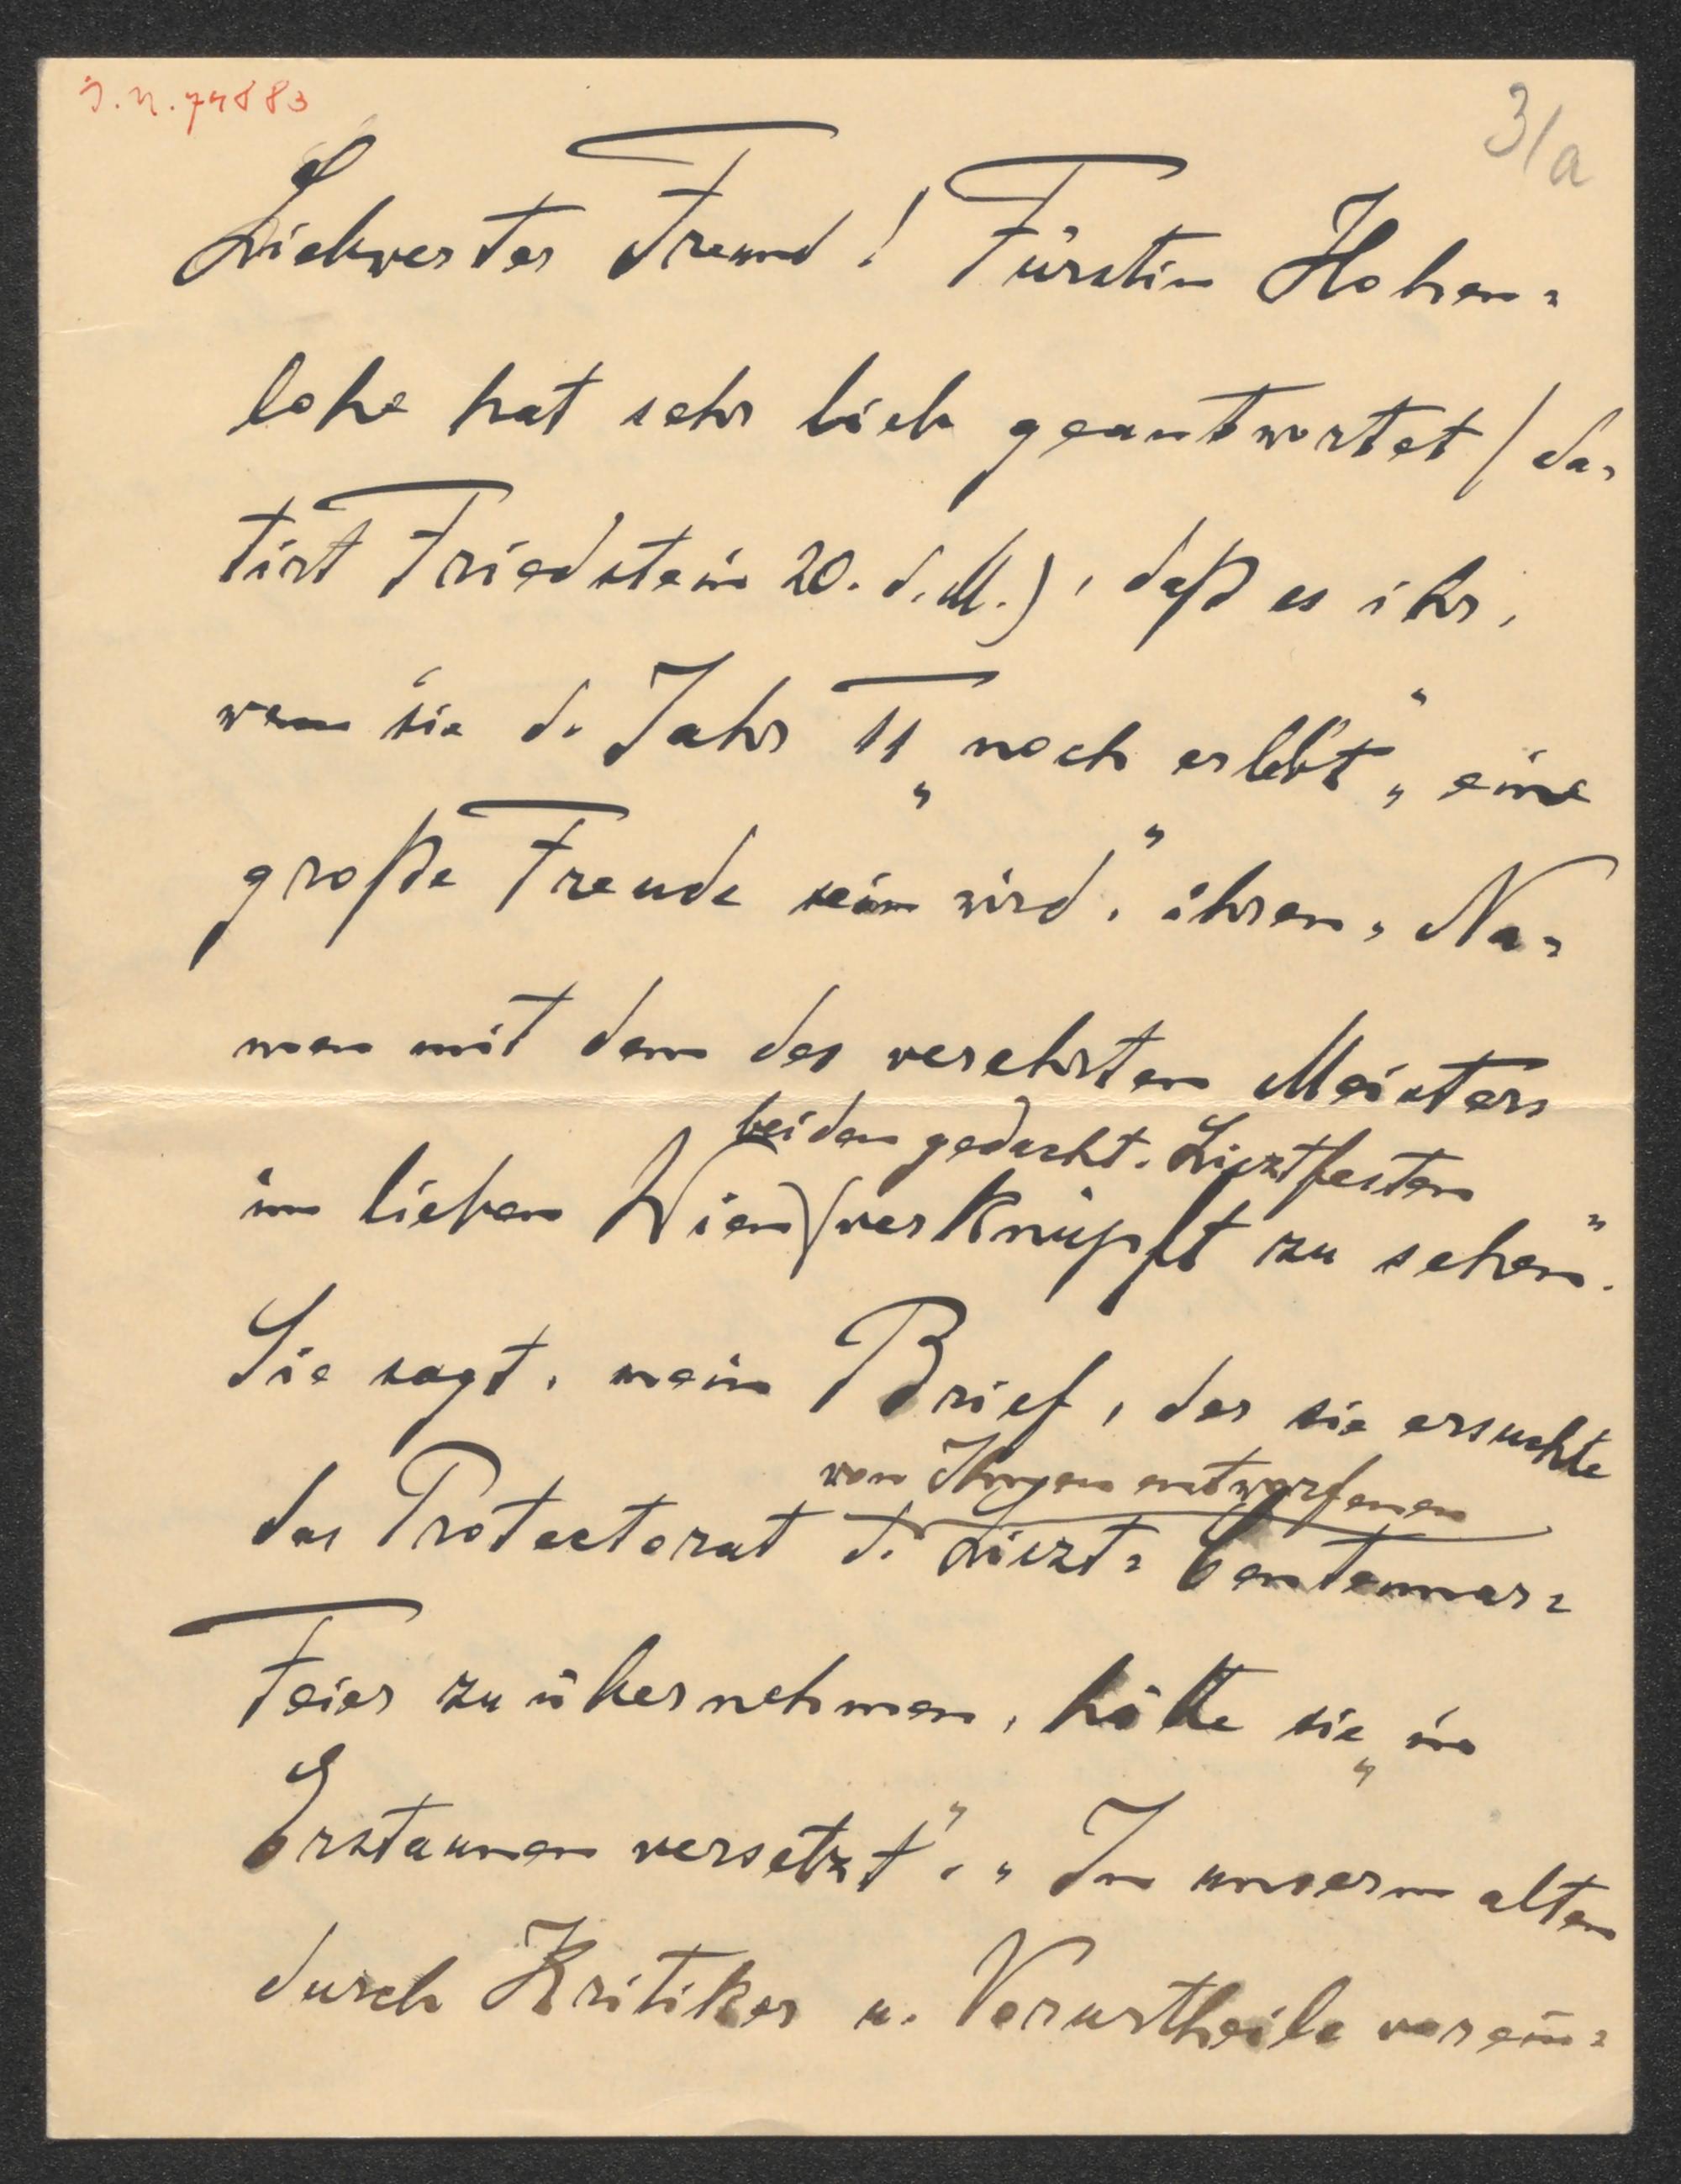 J.N. 74883
3/a
Liebwerter Freund! Fürstin Hohen=
lohe hat sehr lieb geantwortet (da=
tirt Friedstein 20. d. M.), daß es ihr,
wenn sie d. Jahr 11 „noch erlebt", „eine
große Freude sein wird", ihren Na=
men mit dem des verehrten Meisters
bei den gedacht. Lisztfesten
im lieben Wien verknüpft zu sehen".
Sie sagt, mein Brief, der sie ersuchte
von Ihnen entworfenen
das Protectorat d. Liszt=Centennar=
Feier zu übernehmen, hätte sie „in
Erstaunen versetzt". „In unserm alten
durch Kritiker u. Vorurtheile verein=